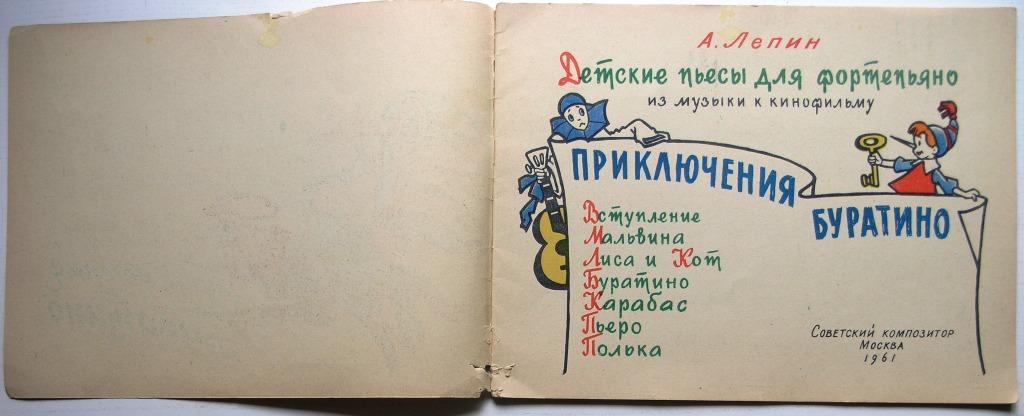 А. Лепин
Детские пьесы для фортепьяно
из музыки к кинофильму
ПРИКЛЮЧЕНИЯ
БУРАТИНО
Вступление
Мальвина
Лиса и Кот
Буратино
Карабас
Пьеро
Полька
Советский композитор
Москва
1961